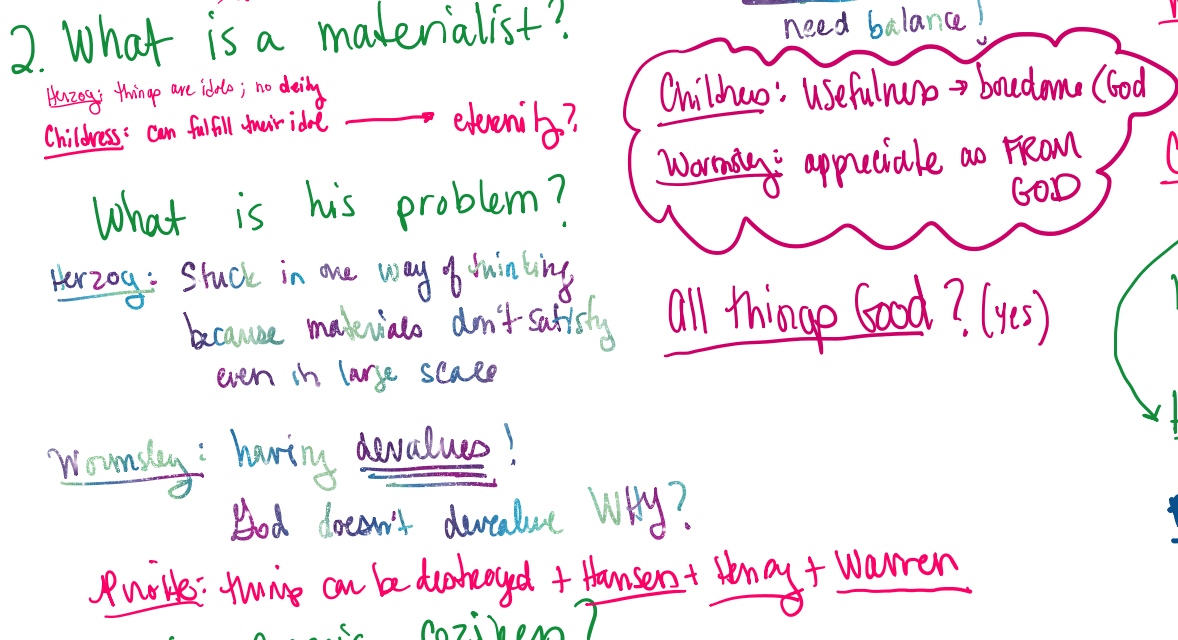 2. What is a materialist?
Herzog: things are idols; no deity
Childress: can fulfill their idol → eternity?
What is his problem?
Herzog: Stuck in one way of thinking
because materials don't satisfy
even in large scale
Wormsley: having devalues!
God doesn't devalue WHY?
things can be destroyed + Hansen + Henry + Warren
need balance!
Childress: usefulness → boredome (God
Wormsley: appreciate as FROM
GOD
All things Good? (yes)